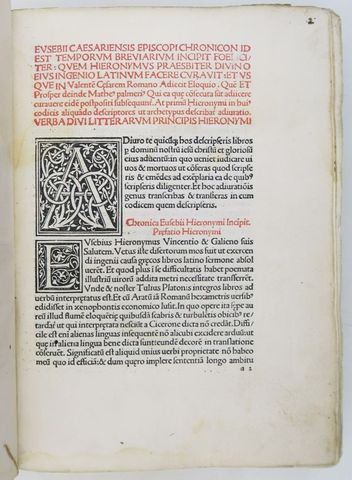 2
EVSEBII CAESARIENSIS EPISCOPI CHRONICON ID
EST TEMPORVM BREVIARIVM INCIPIT FOELICI
TER: QVEM HIERONYMVS PRAESBITER DIVINO
EIVS INGENIO LATINVM FACERE CVRAVIT: ET VS
QVE IN Valentē Cęsarem Romano Adiecit Eloquio. Quē ET
Prosper deinde Matheus palmerius Qui ea quę cōsecuta sūt adiicere
curauere eidē postpositi subsequunt᷑. At primū Hieronymi in huius
codicis aliquādo descriptores ut archetypus describat᷑ adiuratio.
VERBA DIVI LITTERARVM PRINCIPIS HIERONYMI
ADiuro te quicūq; hos descripseris libros
p dominū nostrū iesū christū et gloriosū
eius aduentū: in quo ueniet iudicare ui
uos & mortuos ut cōferas quod scripse
ris & emēdes ad exēplaria ea de quibus
scripseris diligenter. Et hoc adiuratiōis
genus transcribas & transferas in eum
codicem quem descripseris.
Chronica Eusebii Hieronymi Incipit.
Prefatio Hieronymi
EVsebius Hieronymus Vincentio & Galieno suis
Salutem. Vetus iste disertorum mos fuit ut exercen
di ingenii causa gręcos libros latino sermone absol
uerēt. Et quod plus ī se difficultatis habet poemata
illustriū uirorū addita metri necessitate transferrēt.
Vnde & noster Tulius Platonis integros libros ad
uerbū interpretatus est. Et cū Aratū iā Romanū hexametris uersibus
edidisset in xenophontis economico lusit. In quo opere ita sępe au
reū illud flumē eloquētię quibusdā scabris & turbulētis obicibus re/
tardat᷑ ut qui interpretata nesciūt a Cicerone dicta nō credāt. Diffi/
cile est enī alienas linguas insequentē nō alicubi excidere arduū ut
que in aliena lingua bene dicta sunt: eundē decorē in translatione
cōseruēt. Significatū est aliquid unius uerbi proprietate nō habeo
meū quo id efficiā: & dum quęro implere sententiā longo ambitu
a 2